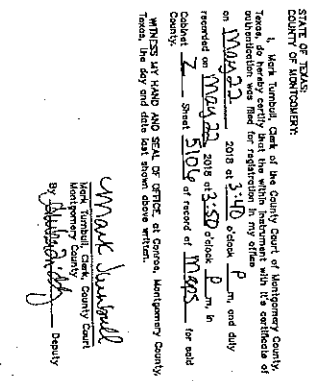 STATE OF TEXAS:
COUNTY OF MONTGOMERY:
I, Mark Turnbull, Clerk of the County Court of Montgomery County,
Texas, do hereby certify that the within instrument with it's certificate of
authentication was filed for registration in my office
on May 22 2018 at 3:40 o'clock P m, and duly
recorded on May 22 2018 at 3:50 o'clock P m, in
Cabinet Z Sheet 5106 of record of Maps for said
County.
WITNESS MY HAND AND SEAL OF OFFICE, at Conroe, Montgomery County,
Texas, the day and date last shown above written.
Mark Turnbull
Mark Turnbull, Clerk, County Court
Montgomery County
By Deputy